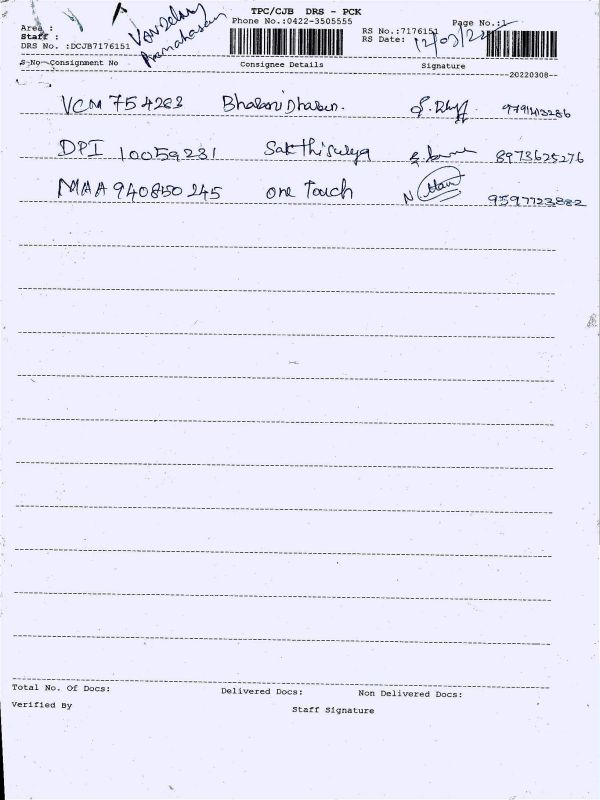 TPC/CJB DRS - PCK
Area :
Phone No.:0422-3505555
Page No.:1
Staff :
RS No.:7176151
DRS No. :DCJB7176151
RS Date: 12/03/22
S-No-Consignment No Consignee Details Signature
20220308
VCM 754283
DPI 10059231 Sakthisurya 8973625276
MAA 940850245 one Touch 9597723882
Total No. Of Docs: Delivered Docs: Non Delivered Docs:
Verified By Staff Signature